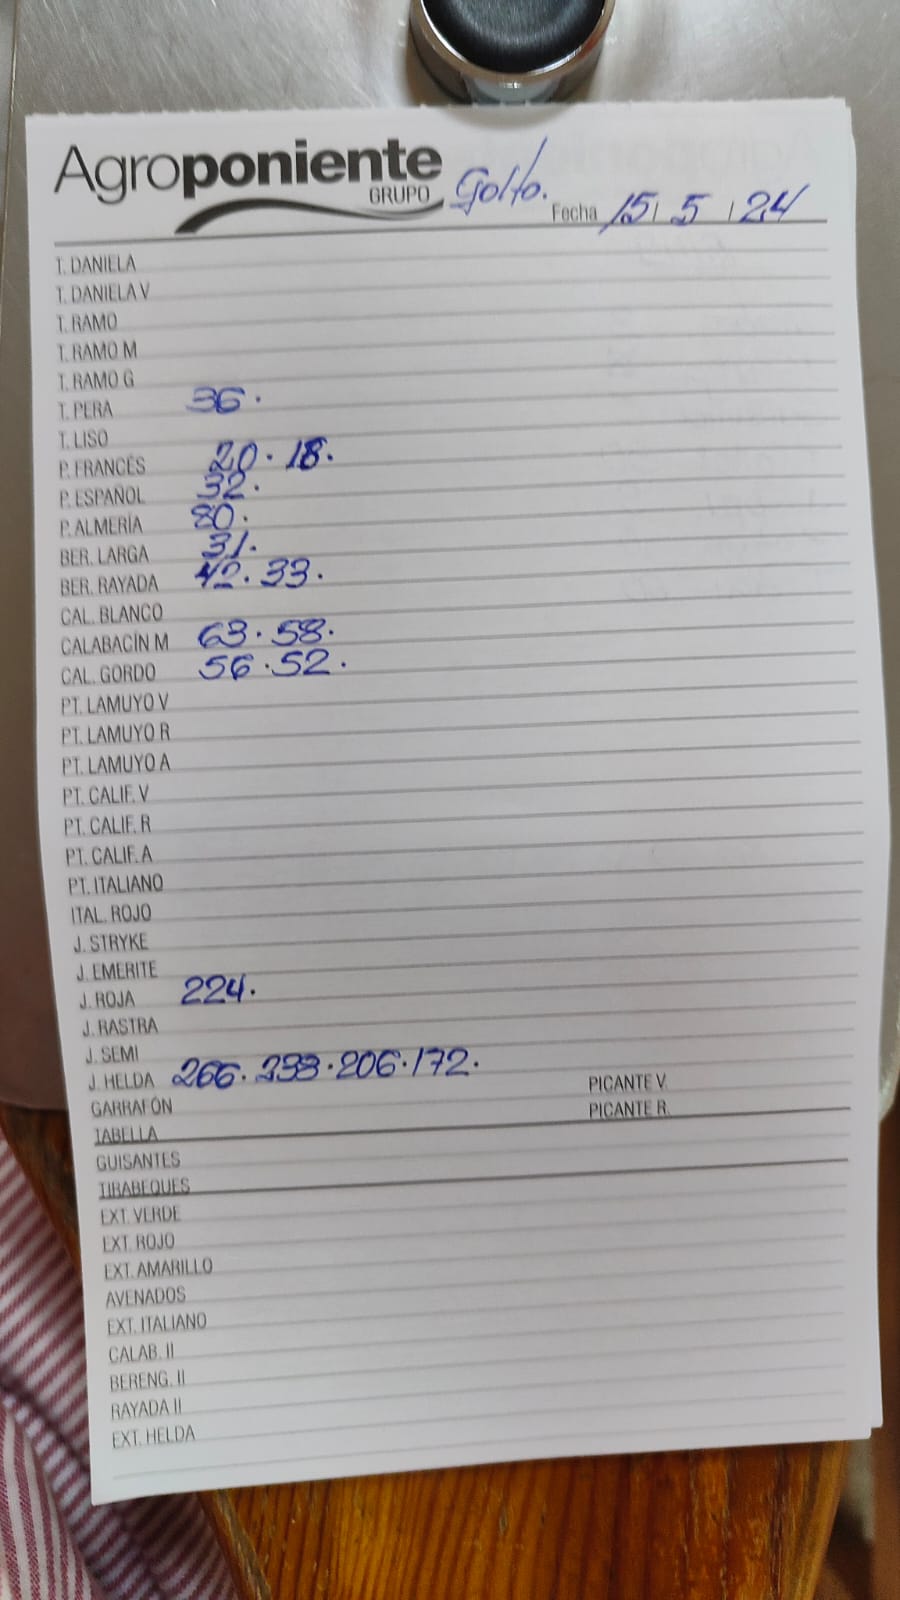 Agroponiente
GRUPO
Golfo.
Fecha 15 / 5 / 24
T. DANIELA
T. DANIELA V
T. RAMO
T. RAMO M
T. RAMO G
T. PERA 36.
T. LISO
P. FRANCÉS 20. 18.
P. ESPAÑOL 32.
P. ALMERÍA 80.
BER. LARGA 31.
BER. RAYADA 42. 33.
CAL. BLANCO
CALABACÍN M 63. 58.
CAL. GORDO 56. 52.
PT. LAMUYO V
PT. LAMUYO R
PT. LAMUYO A
PT. CALIF. V
PT. CALIF. R
PT. CALIF. A
PT. ITALIANO
ITAL. ROJO
J. STRYKE
J. EMERITE
J. ROJA 224.
J. RASTRA
J. SEMI
J. HELDA 266. 233. 206. 172. PICANTE V.
GARRAFÓN PICANTE R.
TABELLA
GUISANTES
TIRABEQUES
EXT. VERDE
EXT. ROJO
EXT. AMARILLO
AVENADOS
EXT. ITALIANO
CALAB. II
BERENG. II
RAYADA II
EXT. HELDA